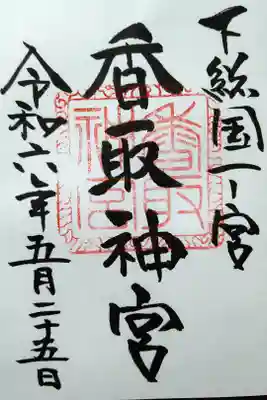 下総国一ノ宮
香取神宮
令和六年五月二十五日